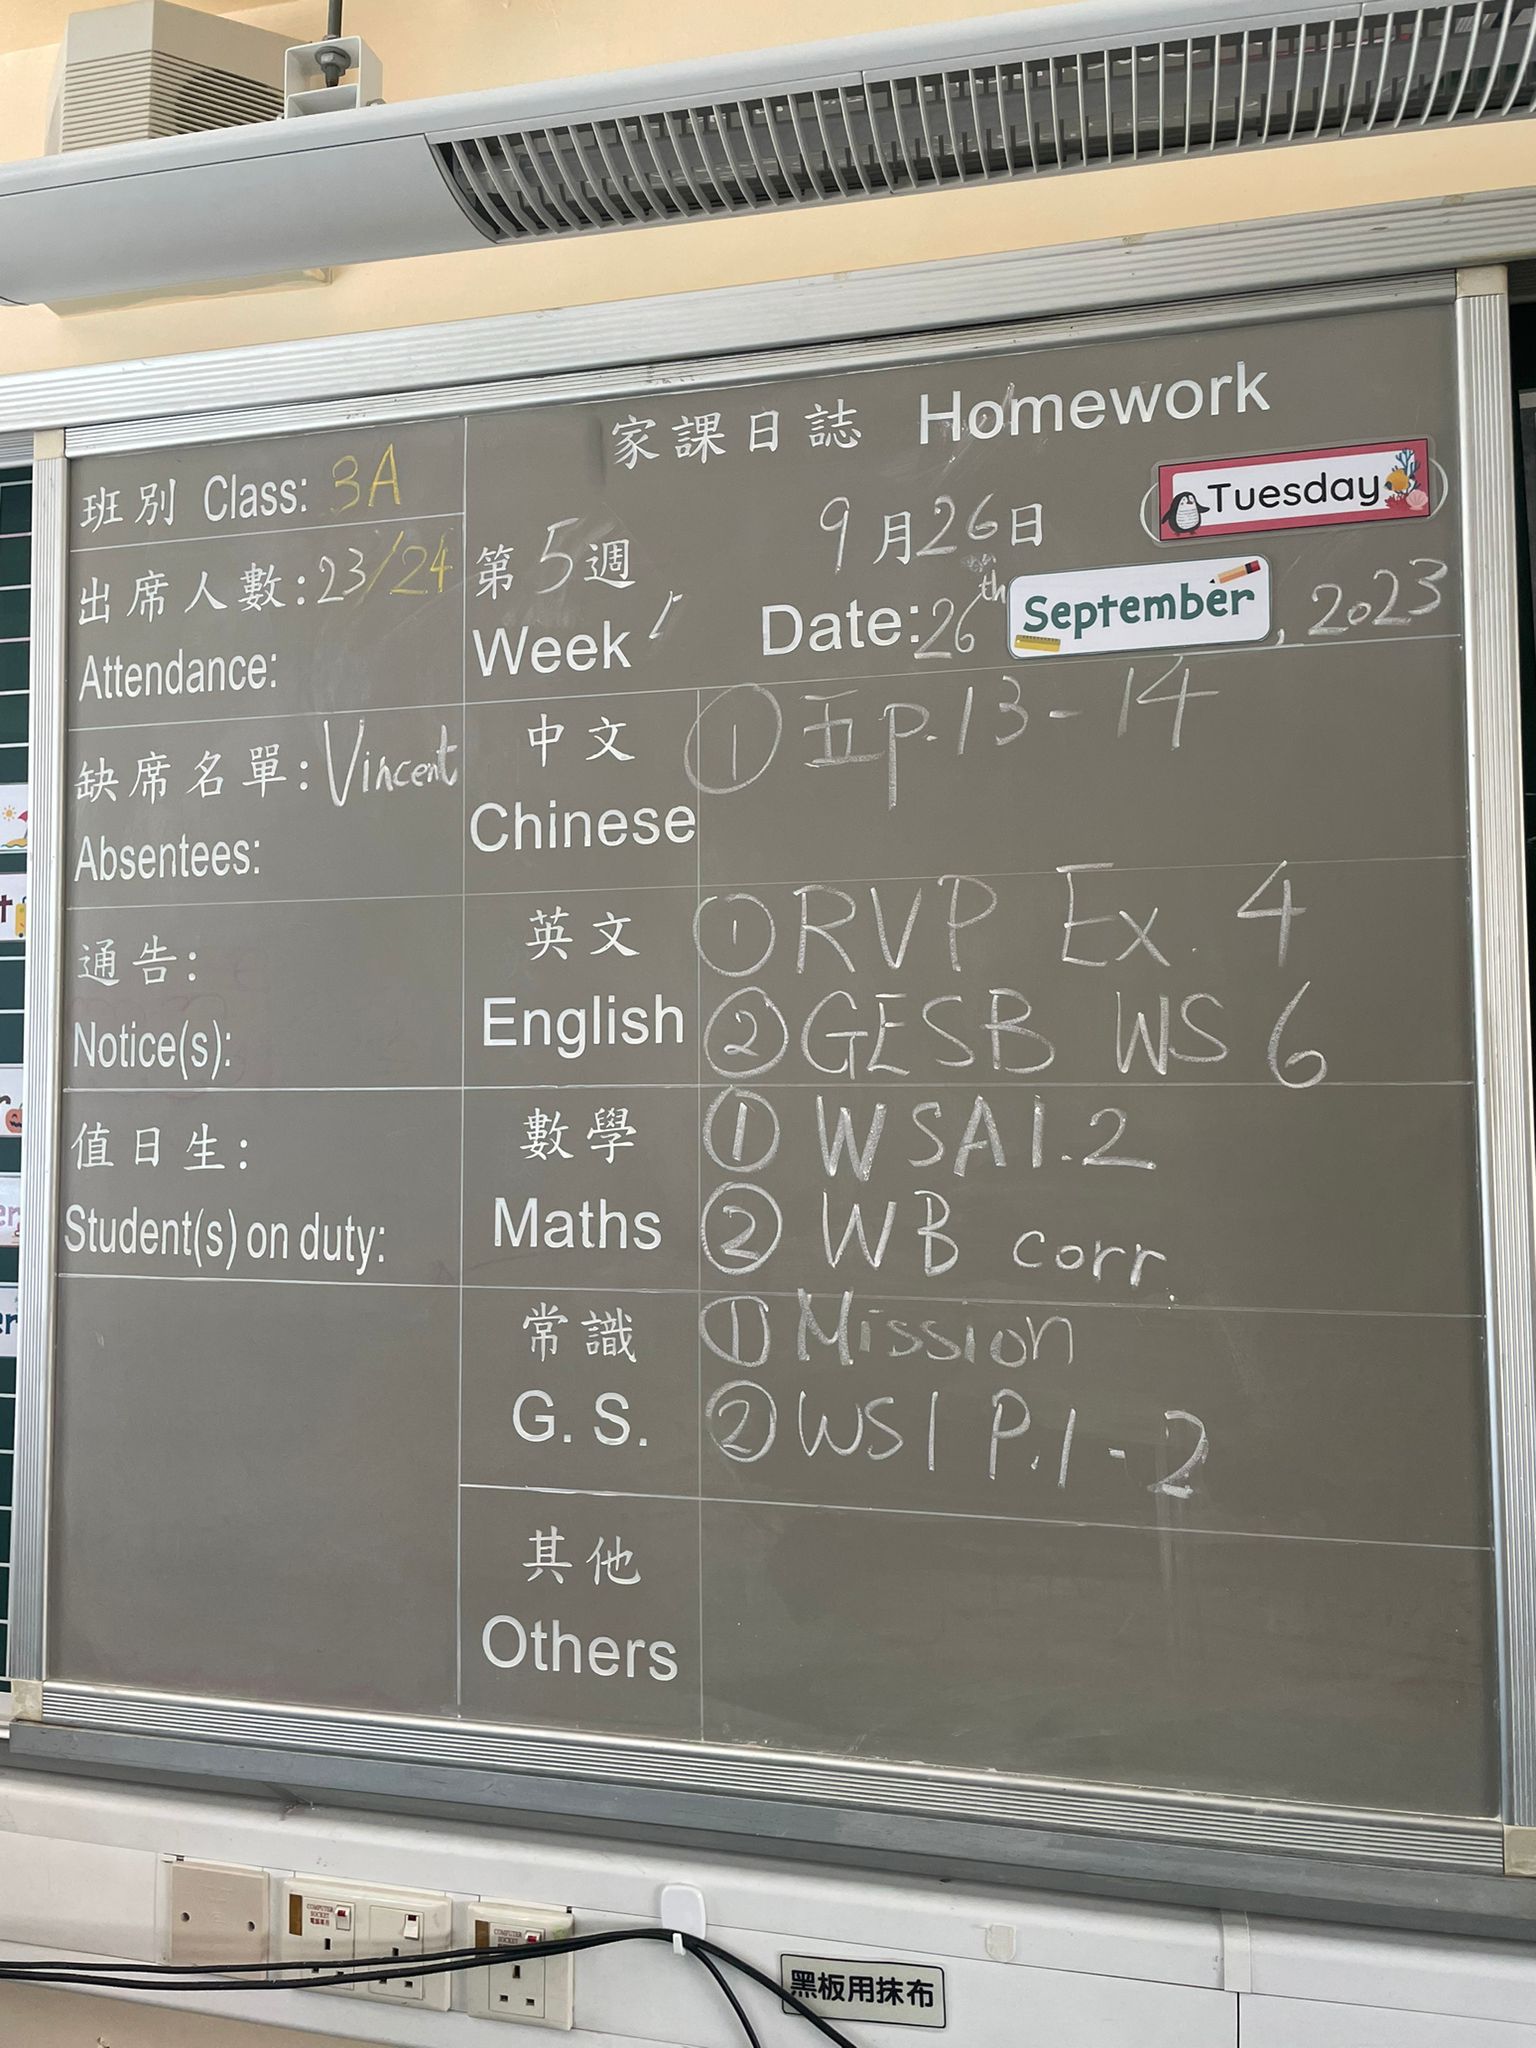 家課日誌 Homework
班別 Class: 3A
出席人數: 23/24
Attendance:
第 5 週
Week
9月26日
Tuesday
Date: 26th September, 2023
缺席名單: Vincent
Absentees:
通告:
Notice(s):
值日生:
Student(s) on duty:
中文
Chinese
① 五 p.13-14
英文
English
① RVP Ex. 4
② GESB WS 6
數學
Maths
① WSA1.2
② WB corr.
常識
G. S.
① Mission
② WS1 P.1-2
其他
Others
COMPUTER
SOCKET
電腦專用
COMPUTER
SOCKET
黑板用抹布